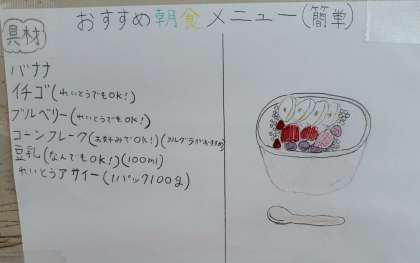 おすすめ朝食メニュー(簡単)
具材
バナナ
イチゴ(れいとうでもOK!)
ブルーベリー(れいとうでもOK!)
コーンフレーク(お好みでOK!)(フルグラがおすすめ)
豆乳(なんでもOK!)(100ml)
れいとうアサイー(1パック100g)